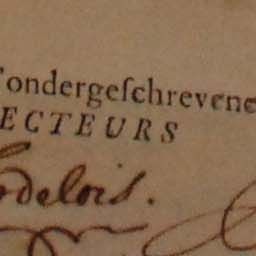 ondergeſchrevene
ECTEURS
odelois.